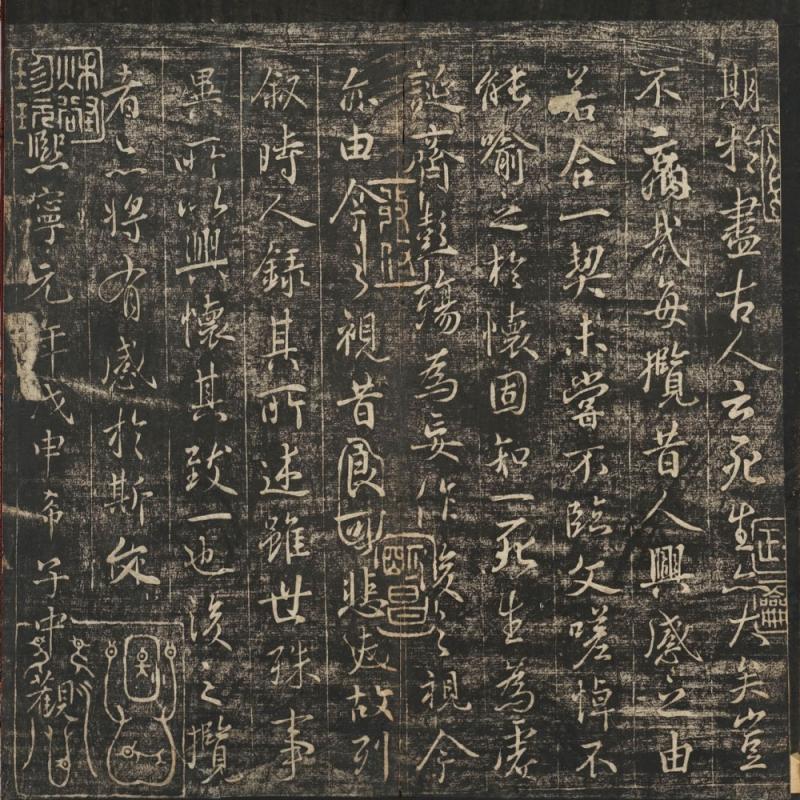 期於盡古人云死生亦大矣豈
不痛哉每攬昔人興感之由
若合一契未嘗不臨文嗟悼不
能喻之於懷固知一死生為虛
誕齊彭殤為妄作後之視今
亦由今之視昔悲夫故列
敘時人錄其所述雖世殊事
異所以興懷其致一也後之攬
者亦將有感於斯文
熙寧元年戊申